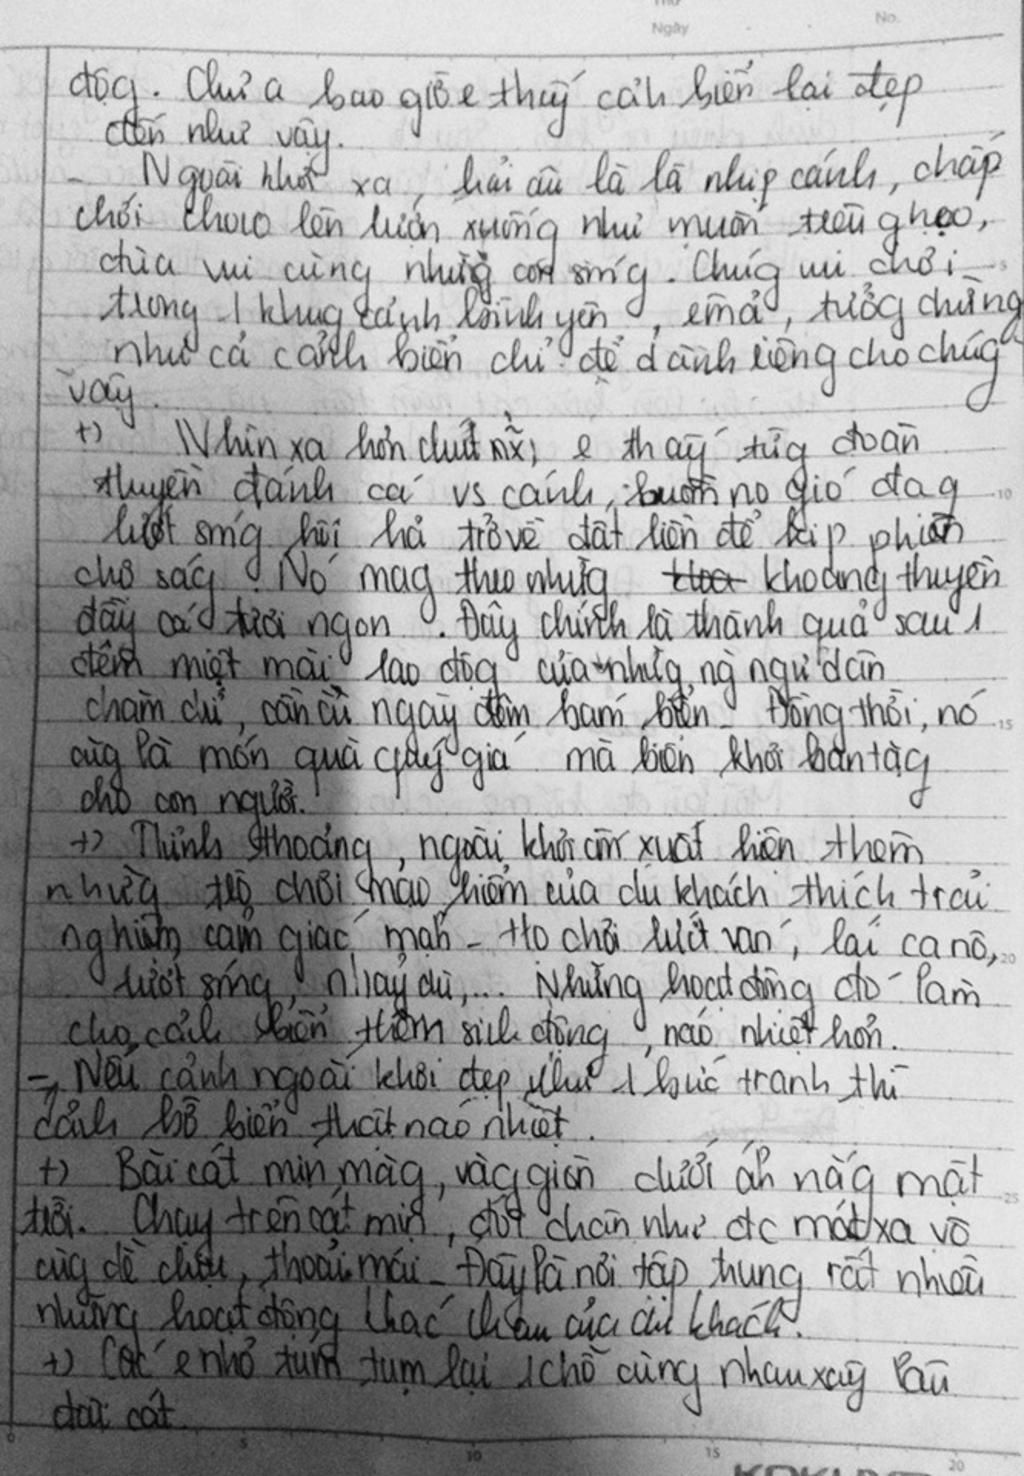 Thứ
Ngày
No.
độg. Chưa bao giờ e thấy cảnh biển lại đẹp
đến như vậy.
- Ngoài khơi xa, hải âu là là nhịp cánh, chấp
chới chao lên lượn xuống như muốn trêu ghẹo,
đùa vui cùng những con sóng. Chúg vui chơi
trong 1 khug cảnh bình yên, êm ả, tưởg chừng
như cả cảnh biển chỉ để dành riêng cho chúg
vậy.
+) Nhìn xa hơn chút nữa, e thấy từg đoàn
thuyền đánh cá vs cánh buồm no gió đag
lướt sóng hối hả trở về đất liền để kịp phiên
chợ ság. Nó mag theo nhữg khoang thuyền
đầy cá tươi ngon. Đây chính là thành quả sau 1
đêm miệt mài lao độg của nhữg ng ngư dân
chăm chỉ, cần cù ngày đêm bám biển. Đồng thời, nó
cũg là món quà quý giá mà biển khơi ban tặg
cho con người.
+) Thỉnh thoảng, ngoài khơi còn xuất hiện thêm
nhữg trò chơi mạo hiểm của du khách thích trải
nghiệm cảm giác mạh. Họ chơi lướt ván, lái ca nô,
lướt sóng, nhảy dù,... Những hoạt động đó làm
cho cảnh biển thêm sinh động, náo nhiệt hơn.
-, Nếu cảnh ngoài khơi đẹp như 1 bức tranh thì
cảnh bờ biển thật náo nhiệt.
+) Bãi cát mịn màg, vàg giòn dưới áh nắg mặt
trời. Chạy trên cát mịn, đôi chân như đc mát xa vô
cùg dễ chịu, thoải mái. Đây là nơi tập trung rất nhiều
những hoạt động khác nhau của du khách.
+) Các e nhỏ túm tụm lại 1 chỗ cùng nhau xây lâu
đài cát